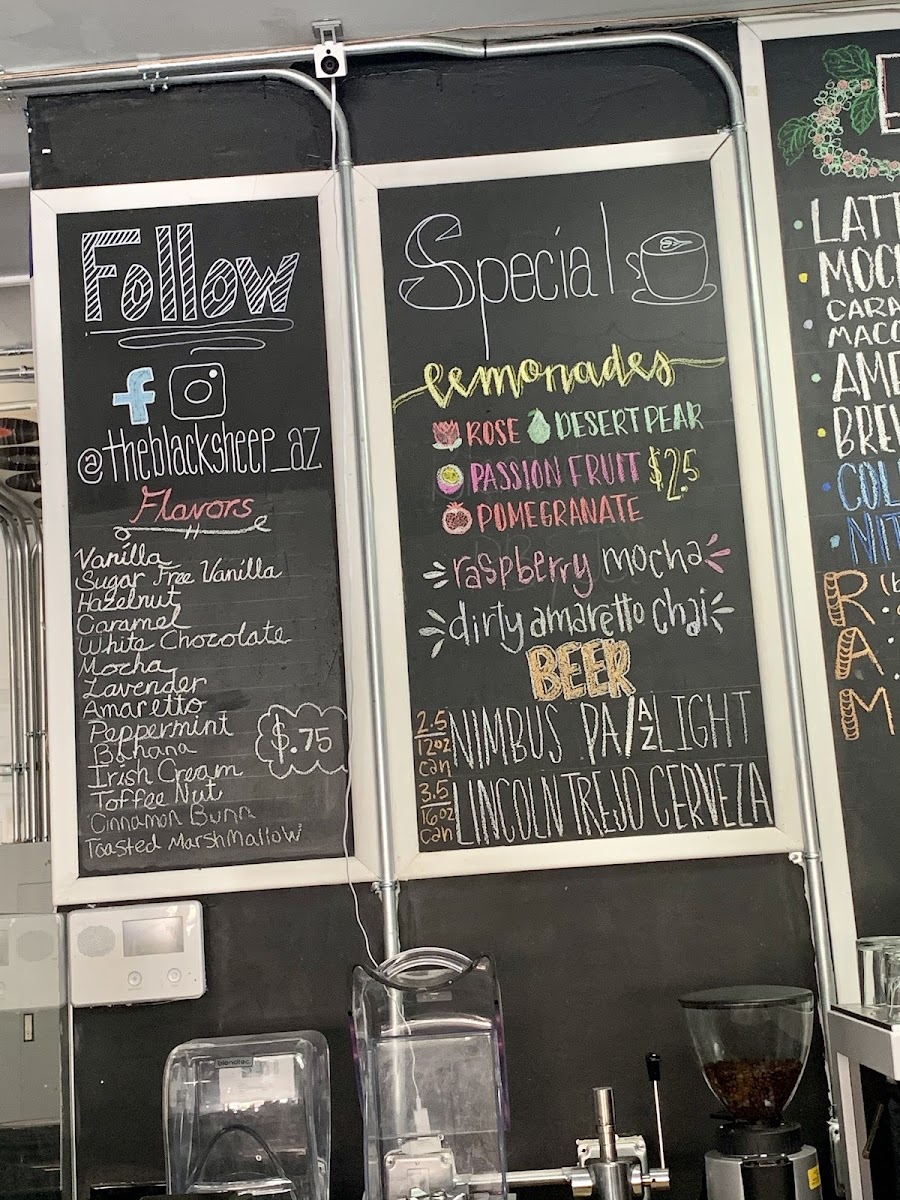 Follow
f
@theblacksheep_az
Flavors
Vanilla
Sugar Free Vanilla
Hazelnut
Caramel
White Chocolate
Mocha
Lavender
Amaretto
Peppermint
Banana
Irish Cream
Toffee Nut
Cinnamon Bunn
Toasted Marshmallow
$.75
Special
lemonades
ROSE DESERT PEAR
PASSION FRUIT $2.5
POMEGRANATE
raspberry mocha
dirty amaretto chai
BEER
2.5 12oz can NIMBUS PA/AZ LIGHT
3.5 16oz can LINCOLN TREJO CERVEZA
LATT
MOCH
CARA
MACC
AME
BREW
COL
NIT
R
A
M
blendtec